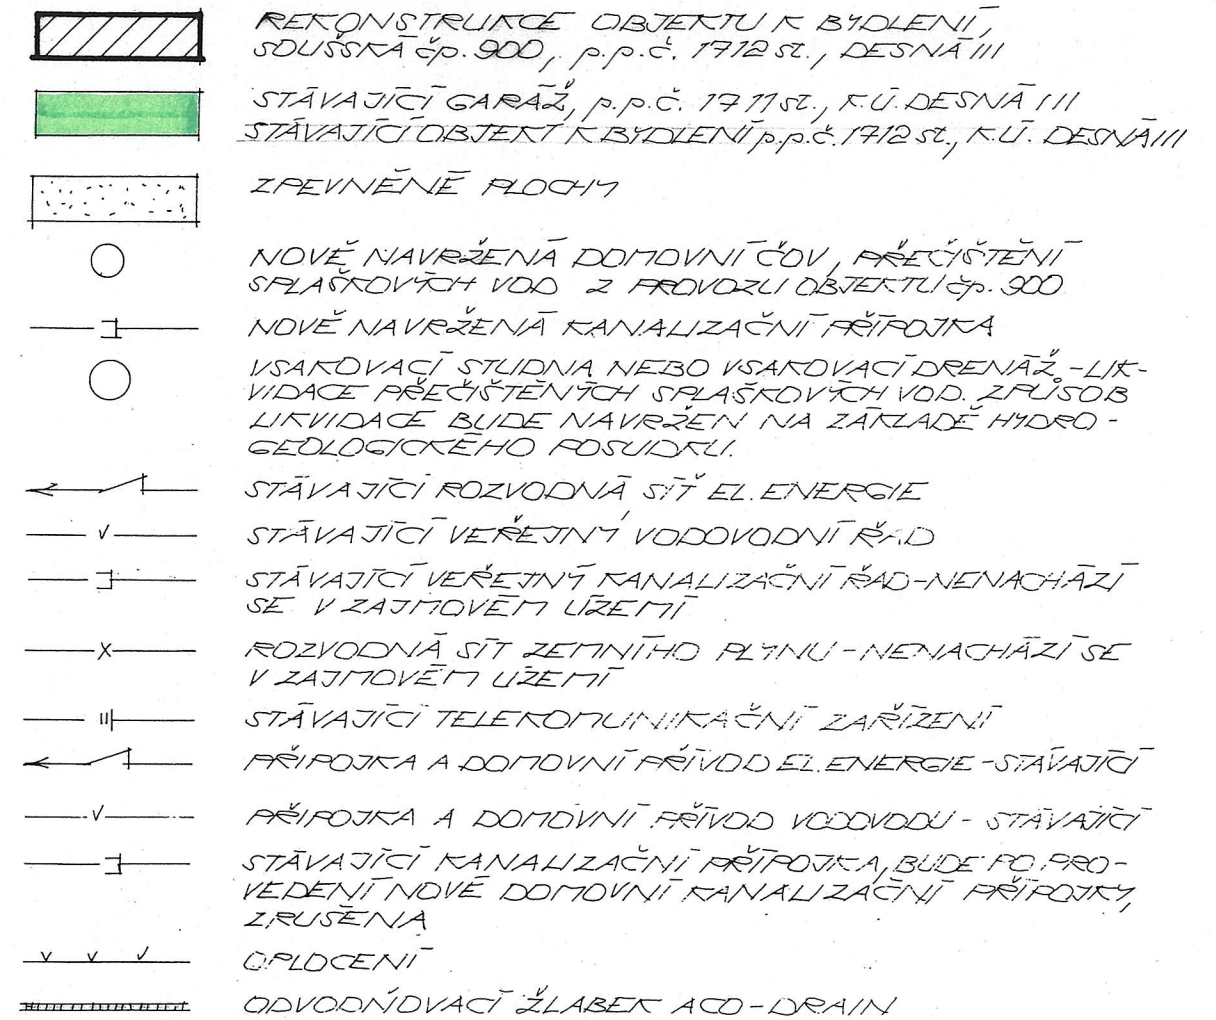 REKONSTRUKCE OBJEKTU K BYDLENÍ,
SOUŠSKÁ čp. 900, p.p.č. 1712 st., DESNÁ III
STÁVAJÍCÍ GARÁŽ, p.p.č. 1711 st., K.Ú. DESNÁ III
STÁVAJÍCÍ OBJEKT K BYDLENÍ p.p.č. 1712 st., K.Ú. DESNÁ III
ZPEVNĚNÉ PLOCHY
NOVĚ NAVRŽENÁ DOMOVNÍ ČOV, PŘEČIŠTĚNÍ
SPLAŠKOVÝCH VOD Z PROVOZU OBJEKTU čp. 900
NOVĚ NAVRŽENÁ KANALIZAČNÍ PŘÍPOJKA
VSAKOVACÍ STUDNA NEBO VSAKOVACÍ DRENÁŽ - LIK-
VIDACE PŘEČIŠTĚNÝCH SPLAŠKOVÝCH VOD. ZPŮSOB
LIKVIDACE BUDE NAVRŽEN NA ZÁKLADĚ HYDRO-
GEOLOGICKÉHO POSUDKU.
STÁVAJÍCÍ ROZVODNÁ SÍŤ EL. ENERGIE
STÁVAJÍCÍ VEŘEJNÝ VODOVODNÍ ŘAD
STÁVAJÍCÍ VEŘEJNÝ KANALIZAČNÍ ŘAD - NENACHÁZÍ
SE V ZAJMOVÉM ÚZEMÍ
ROZVODNÁ SÍT ZEMNÍHO PLYNU - NENACHÁZÍ SE
V ZAJMOVÉM ÚZEMÍ
STÁVAJÍCÍ TELEKOMUNIKAČNÍ ZAŘÍZENÍ
PŘIPOJKA A DOMOVNÍ PŘÍVOD EL. ENERGIE - STÁVAJÍCÍ
PŘIPOJKA A DOMOVNÍ PŘÍVOD VODOVODU - STÁVAJÍCÍ
STÁVAJÍCÍ KANALIZAČNÍ PŘÍPOJKA, BUDE PO PRO-
VEDENÍ NOVÉ DOMOVNÍ KANALIZAČNÍ PŘÍPOJKY,
ZRUŠENA
OPLOCENÍ
ODVODŇOVACÍ ŽLABEK ACO-DRAIN